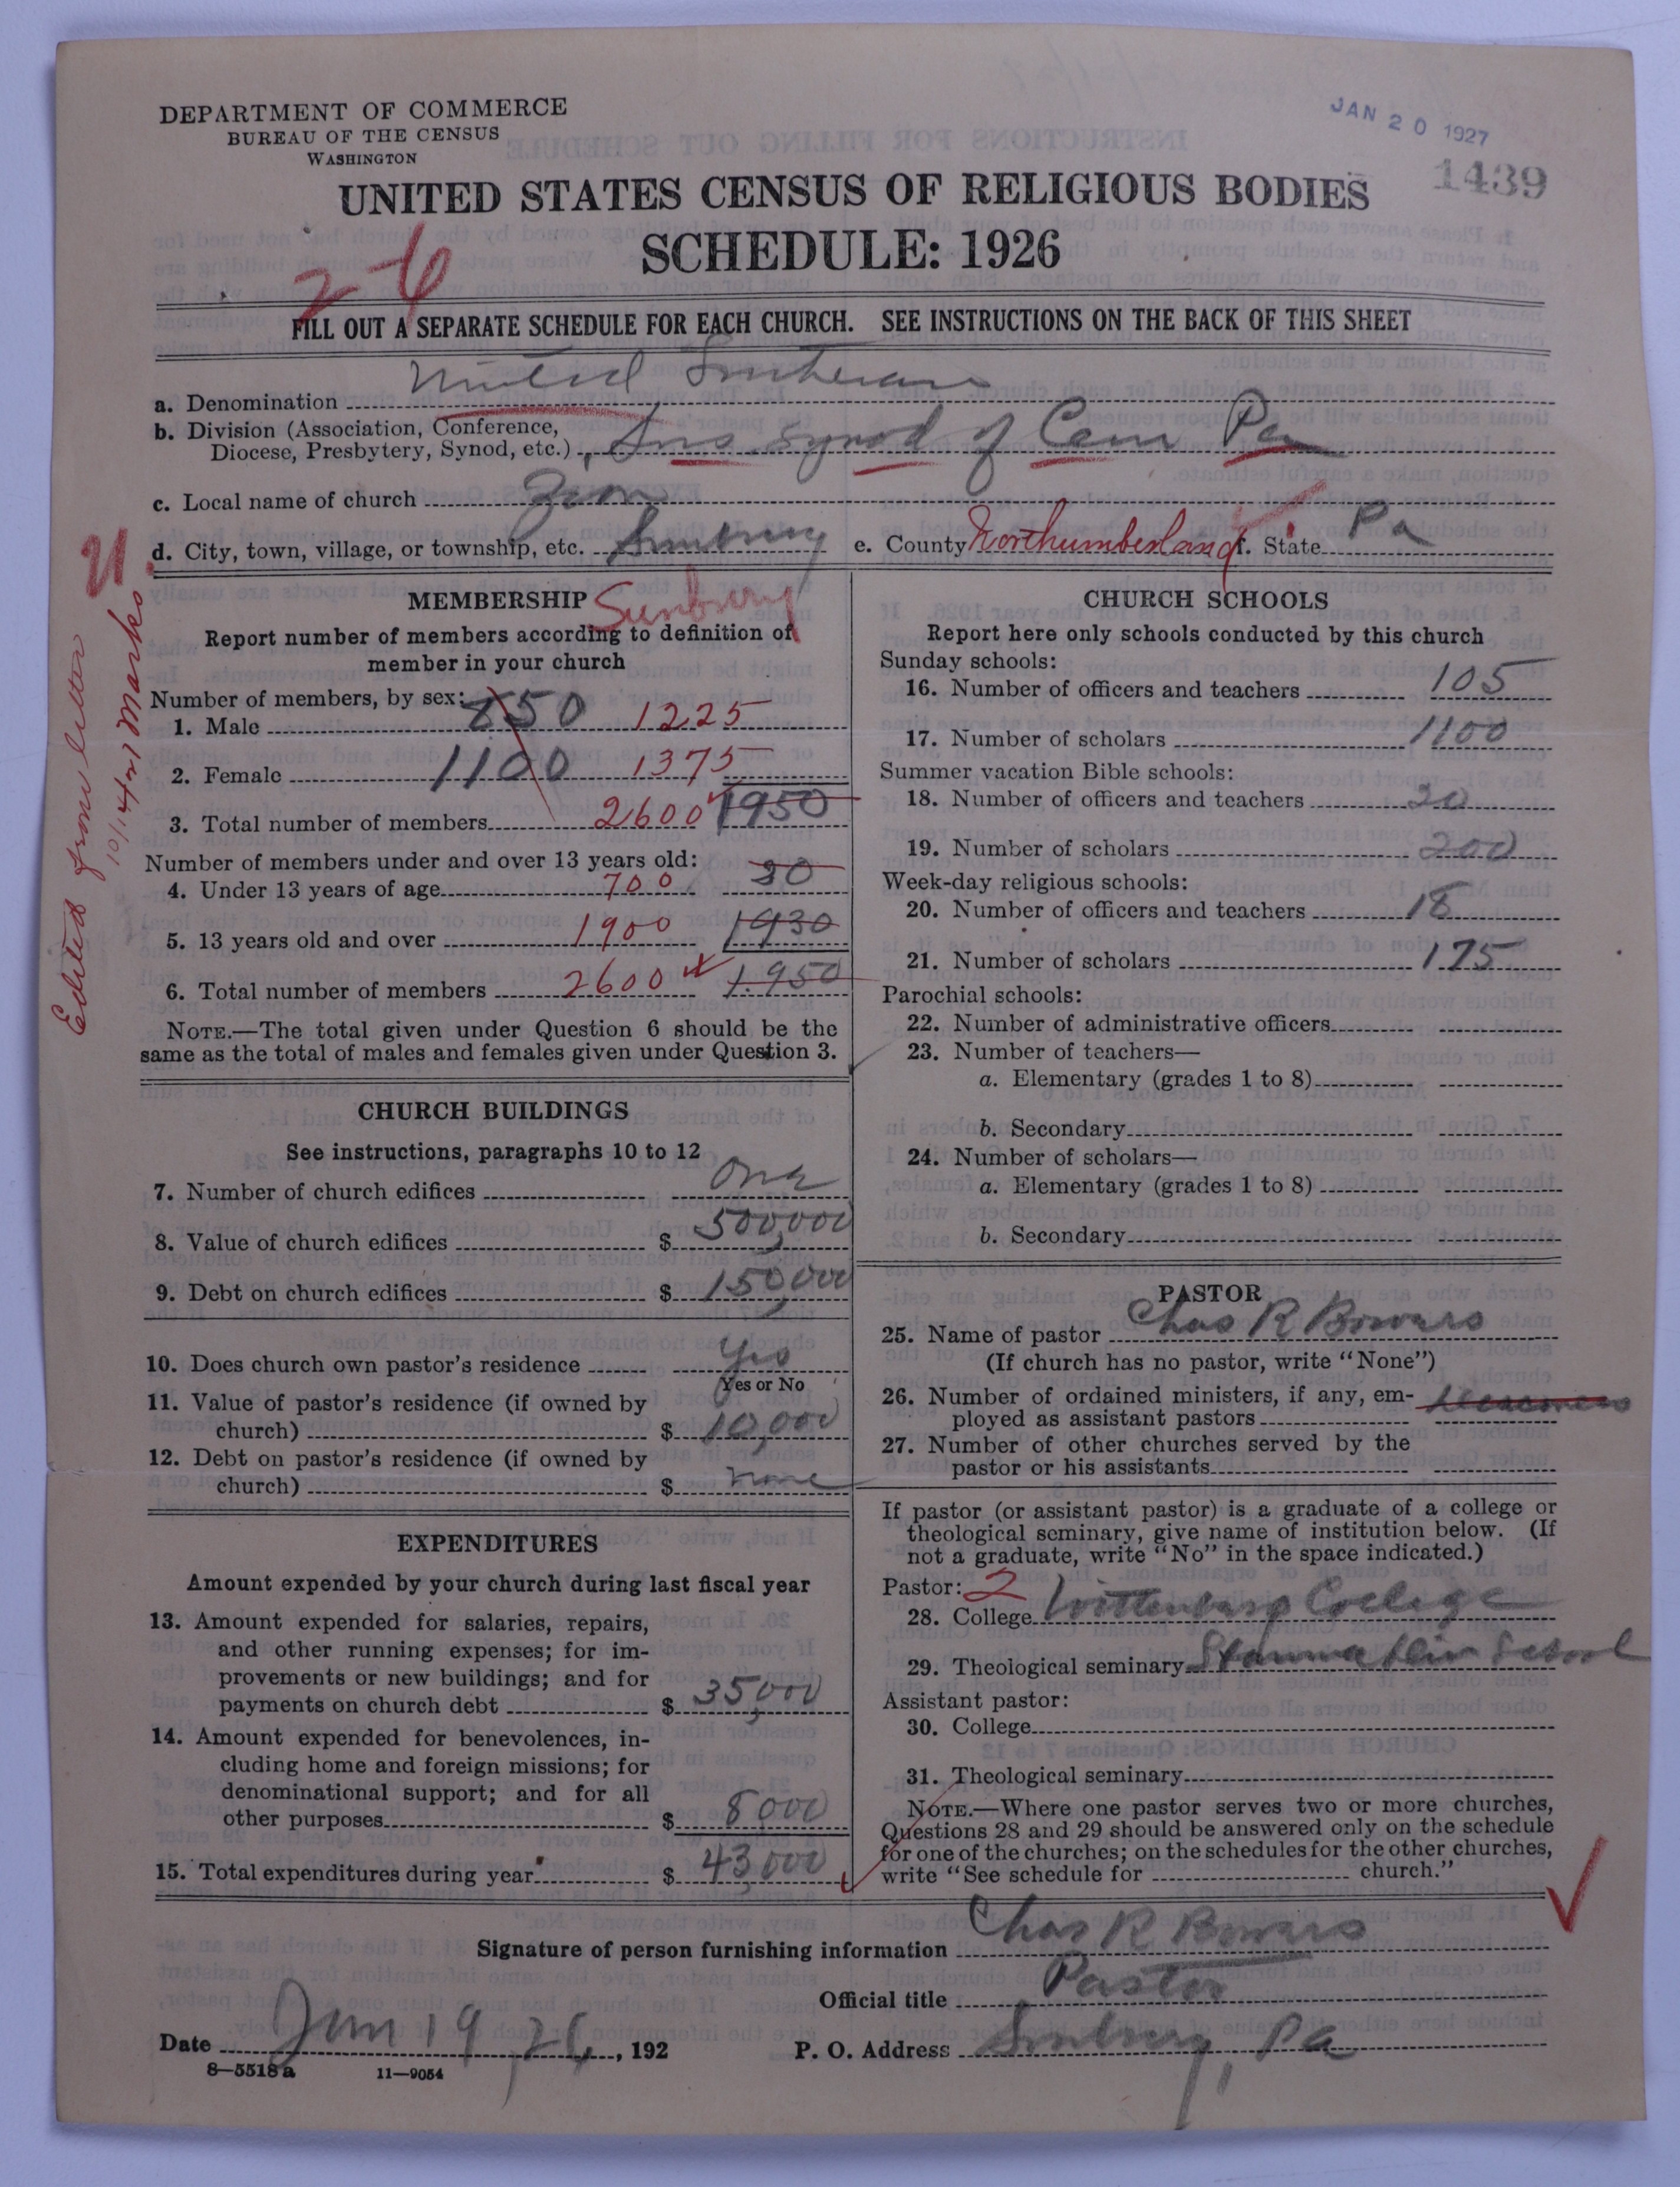 DEPARTMENT OF COMMERCE
BUREAU OF THE CENSUS
WASHINGTON
JAN 20 1927
1439
UNITED STATES CENSUS OF RELIGIOUS BODIES
SCHEDULE: 1926
FILL OUT A SEPARATE SCHEDULE FOR EACH CHURCH. SEE INSTRUCTIONS ON THE BACK OF THIS SHEET
a. Denomination United Lutheran
b. Division (Association, Conference,
Diocese, Presbytery, Synod, etc.) Synod of Pa
c. Local name of church Zion
d. City, town, village, or township, etc. Sunbury e. County Northumberland f. State Pa
Edited from letter
10/14/27 Marks
MEMBERSHIP Sunbury
Report number of members according to definition of
member in your church
Number of members, by sex:
1. Male 850 1225
2. Female 1100 1375
3. Total number of members 2600 1950
Number of members under and over 13 years old:
4. Under 13 years of age 700
5. 13 years old and over 1900 1930
6. Total number of members 2600 1950
NOTE.—The total given under Question 6 should be the
same as the total of males and females given under Question 3.
CHURCH BUILDINGS
See instructions, paragraphs 10 to 12
7. Number of church edifices One
8. Value of church edifices $ 500,000
9. Debt on church edifices $ 150,000
10. Does church own pastor's residence Yes
Yes or No
11. Value of pastor's residence (if owned by
church) $ 10,000
12. Debt on pastor's residence (if owned by
church) $ none
EXPENDITURES
Amount expended by your church during last fiscal year
13. Amount expended for salaries, repairs,
and other running expenses; for im-
provements or new buildings; and for
payments on church debt $ 35,000
14. Amount expended for benevolences, in-
cluding home and foreign missions; for
denominational support; and for all
other purposes $ 8000
15. Total expenditures during year $ 43,000
CHURCH SCHOOLS
Report here only schools conducted by this church
Sunday schools:
16. Number of officers and teachers 105
17. Number of scholars 1100
Summer vacation Bible schools:
18. Number of officers and teachers
19. Number of scholars 200
Week-day religious schools:
20. Number of officers and teachers 18
21. Number of scholars 175
Parochial schools:
22. Number of administrative officers
23. Number of teachers—
a. Elementary (grades 1 to 8)
b. Secondary
24. Number of scholars—
a. Elementary (grades 1 to 8)
b. Secondary
PASTOR
25. Name of pastor Chas R Bowers
(If church has no pastor, write "None")
26. Number of ordained ministers, if any, em-
ployed as assistant pastors
27. Number of other churches served by the
pastor or his assistants
If pastor (or assistant pastor) is a graduate of a college or
theological seminary, give name of institution below. (If
not a graduate, write "No" in the space indicated.)
Pastor: 2
28. College Wittenberg College
29. Theological seminary Hamma Div School
Assistant pastor:
30. College
31. Theological seminary
NOTE.—Where one pastor serves two or more churches,
Questions 28 and 29 should be answered only on the schedule
for one of the churches; on the schedules for the other churches,
write "See schedule for church."
Signature of person furnishing information Chas R Bowers
Official title Pastor
Date Jan 19 26, 192
P. O. Address Sunbury, Pa
8—5518a 11—9054